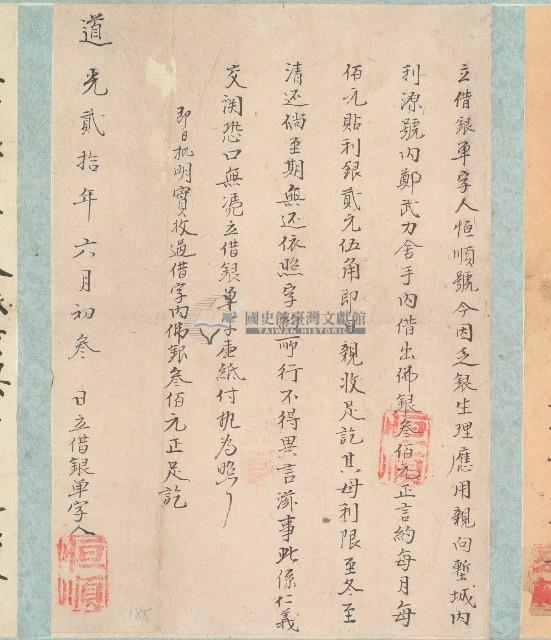 立借銀單字人恒順號今因乏銀生理應用親向塹城內
利源號內鄭武力舍手內借出佛銀叁佰元正言約每月每
佰元貼利銀貳元伍角即日親收足訖其母利限至冬至
清还倘至期無还依照字約而行不得異言滋事此係仁義
交関恐口無憑立借銀單字壹紙付执為照
即日批明實收過借字內佛銀叁佰元正足訖
道光貳拾年六月初叁 日立借銀單字人
恒順
恒順
國史館臺灣文獻館
TAIWAN HISTORICA
185